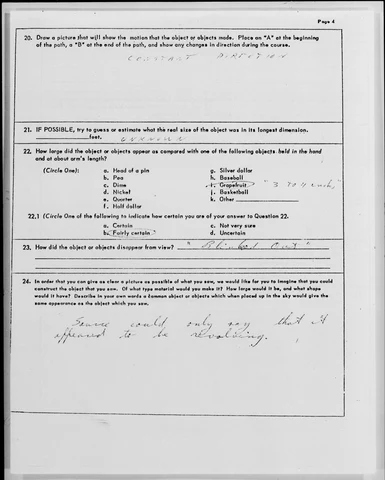 Page 4
20. Draw a picture that will show the motion that the object or objects made. Place an "A" at the beginning
of the path, a "B" at the end of the path, and show any changes in direction during the course.
CONSTANT DIRECTION
21. IF POSSIBLE, try to guess or estimate what the real size of the object was in its longest dimension.
feet. UNKNOWN
22. How large did the object or objects appear as compared with one of the following objects held in the hand
and at about arm's length?
(Circle One): a. Head of a pin g. Silver dollar
b. Pea h. Baseball
c. Dime i. Grapefruit "3 TO 4 inches"
d. Nickel j. Basketball
e. Quarter k. Other
f. Half dollar
22.1 (Circle One of the following to indicate how certain you are of your answer to Question 22.
a. Certain c. Not very sure
b. Fairly certain d. Uncertain
23. How did the object or objects disappear from view? "Blinked Out"
24. In order that you can give as clear a picture as possible of what you saw, we would like for you to imagine that you could
construct the object that you saw. Of what type material would you make it? How large would it be, and what shape
would it have? Describe in your own words a common object or objects which when placed up in the sky would give the
same appearance as the object which you saw.
Source could only say that it
appeared to be revolving.